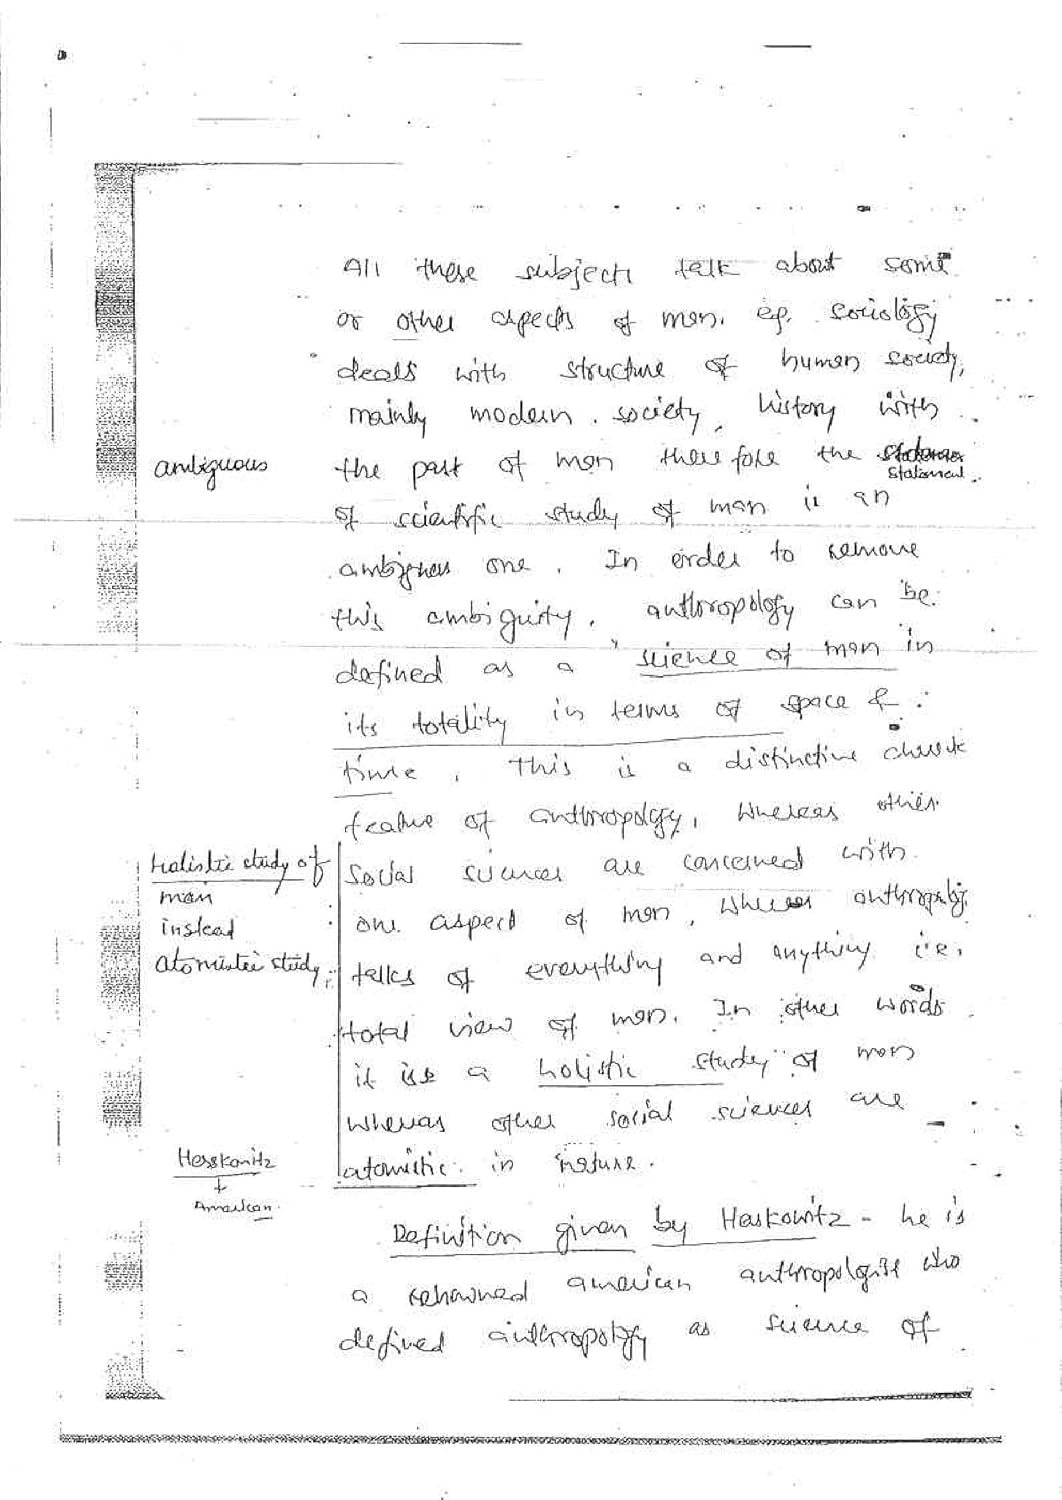 All these subjects talk about some
or other aspects of man. eg. sociology
deals with structure of human society,
mainly modern society, history with
ambiguous
the past of man therefore the
statement
of scientific study of man is an
ambiguous one. In order to remove
this ambiguity, anthropology can be
defined as a "science of man in
its totality in terms of space &
time, This is a distinctive
feature of anthropology, whereas other
Holistic study of
man
instead
atomistic study
social sciences are concerned with
one aspect of man, whereas anthropology
talks of everything and anything i.e.
total view of man. In other words
it is a holistic study of man
whereas other social sciences are
atomistic in nature.
Herskowitz
↓
American
Definition given by Herskowitz - he is
a renowned american anthropologist who
defined anthropology as science of